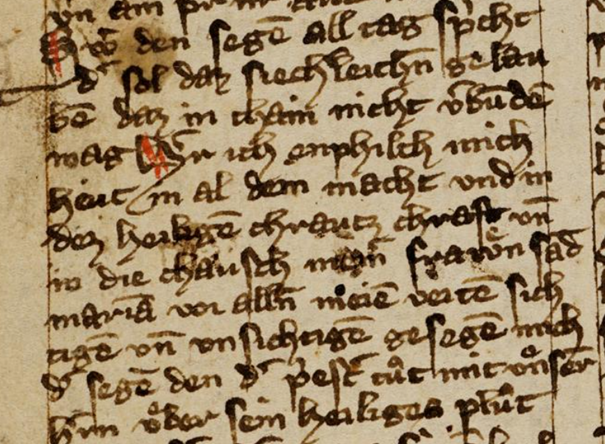 vn̄ am
Swͤ den segē all tag sp̄cht
dͬ sol daz siechleichn̄ gelau
bē daz in chain nicht v̄bu͂dē
mag Hͬr ich enphilch mich
heut in al dem macht vnd in
dez heiligē chrautz chraft vn̄
in die chausch meinͬ frawn̄ sād
mariā vor alln̄ meiē veitē sich
tigē vn̄ vnsichtigē gesegē mich
dͬ segē den dͬ p̄estͬ tut mit vnserͫ
hr̄n vͤber sein heiliges plut